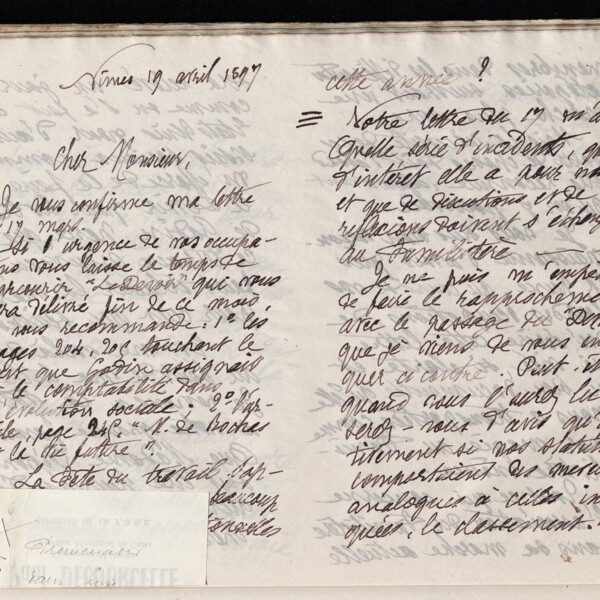 Nîmes 19 avril 1897
Cher Monsieur,
Je vous confirme ma lettre
17 mars.
Si l'urgence de vos occupa-
ns vous laisse le temps de
arcourir "Le Devoir" que vous
era délivré fin de ce mois,
vous recommande: 1º les
ages 204, 205 touchant le
ent que Godin assignait
la comptabilité dans
évolution sociale; 2º l'ar-
le, page 245. "N. de Boches
la vie future".
La fête du travail d'ap-
beaucoup
cette année ?
Votre lettre du 17 m'a
Quelle série d'incidents, qu
d'intérêt elle a pour no
et que de discutions et de
réflexions doivent s'échang
au Familistère
Je ne puis m'empê
de faire le rapprocheme
avec le passage du "De
que je viens de vous in
quer ci contre. Peut-êt
quand vous l'aurez lu
serez-vous d'avis qu'
tivement si nos statut
comportaient des mesu
analogues à celles in
quées, le classement
DECOURCELLE